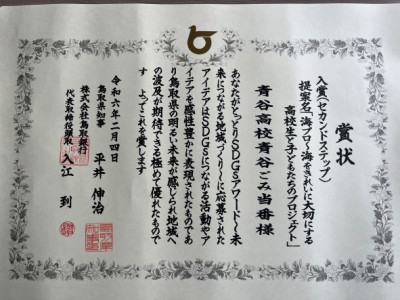 賞状
入賞（セカンドステップ）
提案名「海プロ～海をきれいに大切にする
高校生と子どもたちのプロジェクト」
青谷高校青谷ごみ当番様
あなたがとっとりSDGsアワード～未
来につながる地域づくり～に応募された
アイデアはSDGsにつながる活動やア
イデアを感性豊かに表現されたものであ
り鳥取県の明るい未来が感じられ地域へ
の波及が期待できる極めて優れたもので
す よってこれを賞します
令和六年二月四日
鳥取県知事 平井伸治
株式会社鳥取銀行
代表取締役頭取 入江到